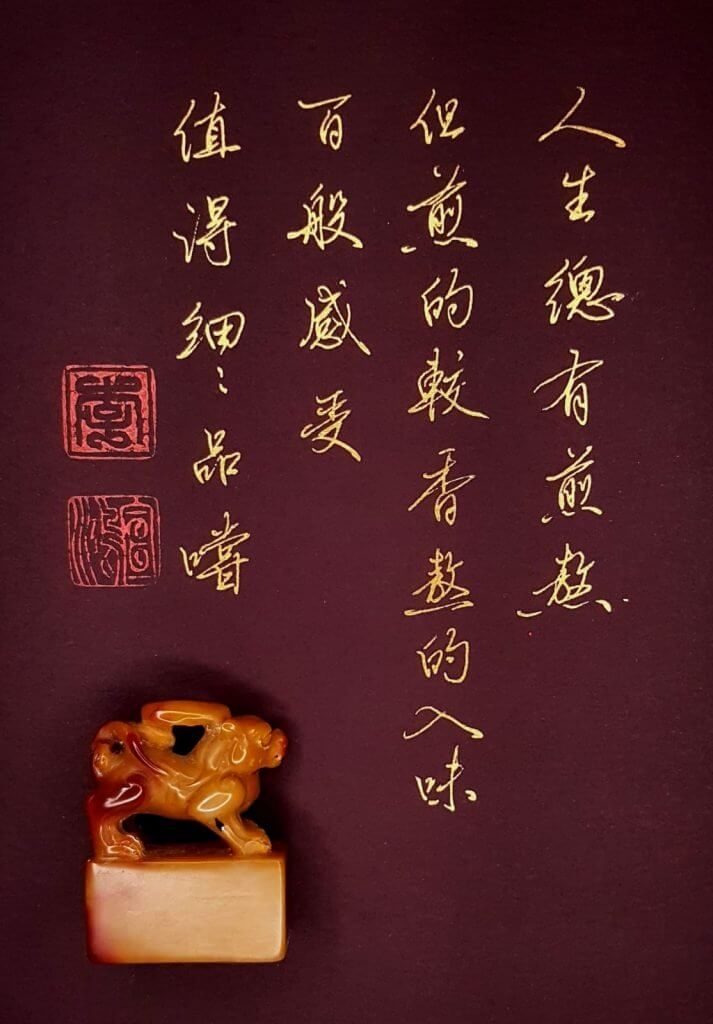 人生總有煎熬
但煎的較香熬的入味
百般感受
值得細々品嚐